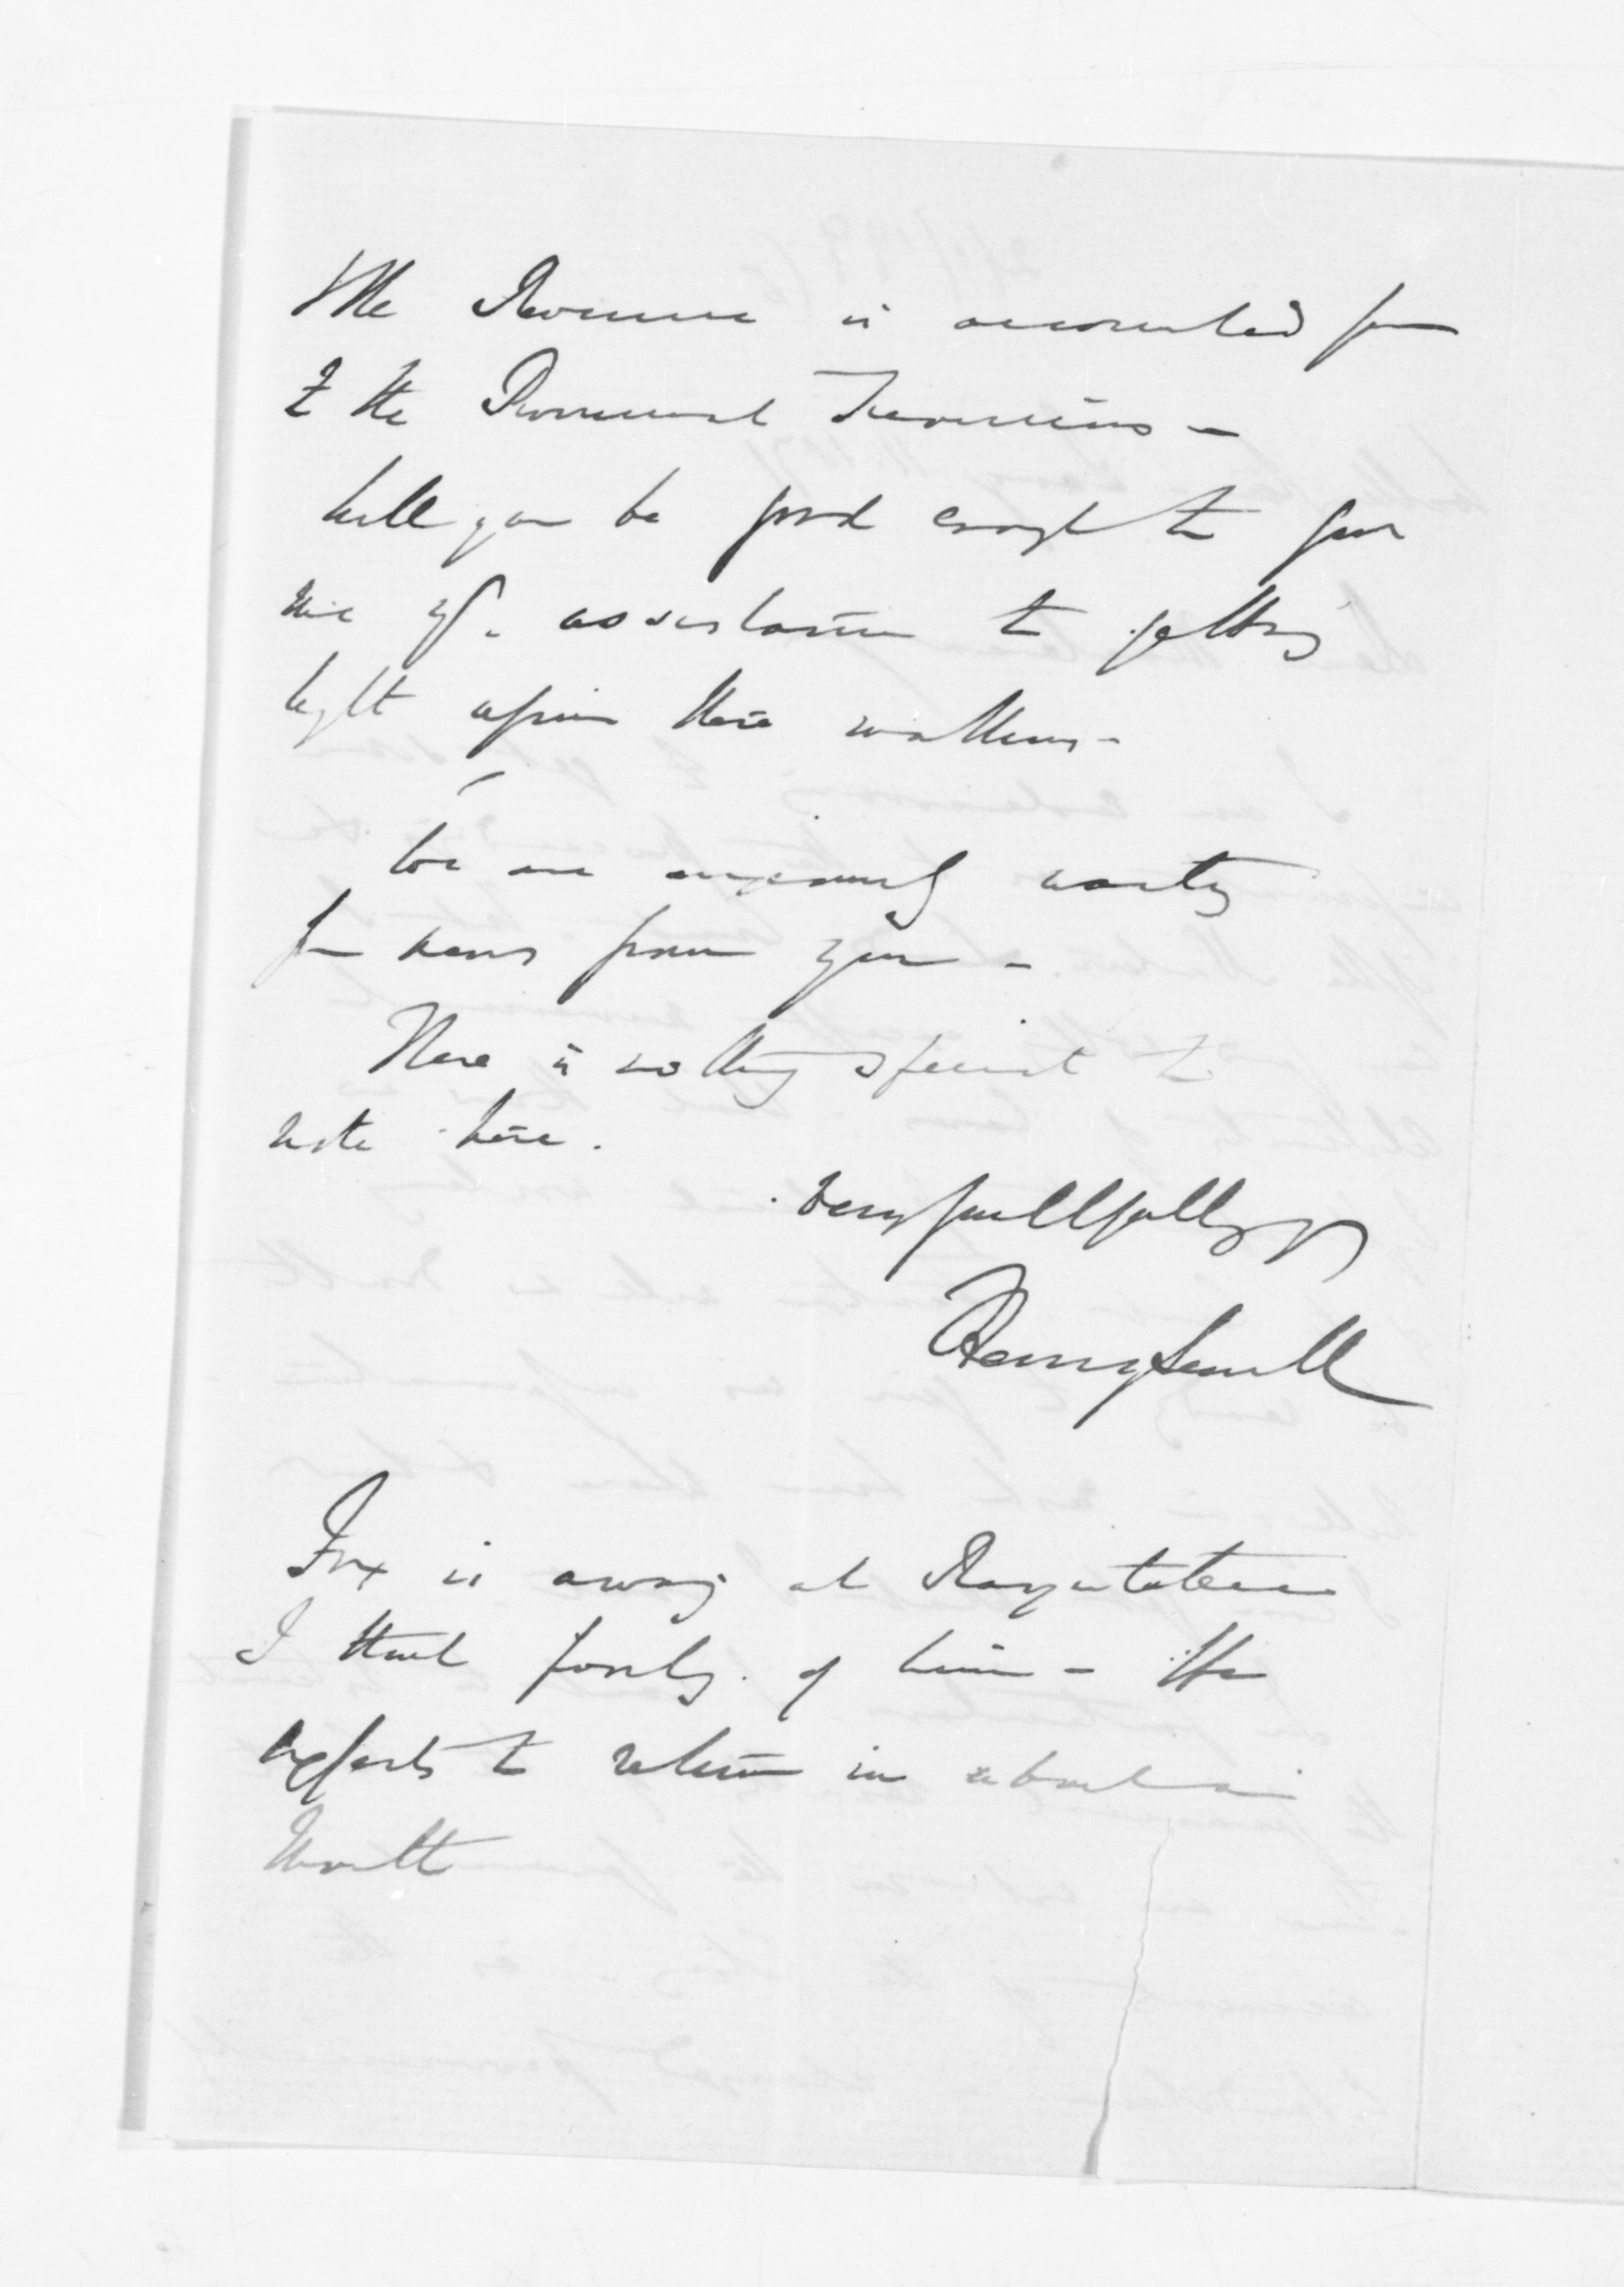 the Revenue is accounted for
to the Provincial Treasuries -
Will you be good enough to give
me yr. assistance to getting
light upon these matters -
We are anxiously waiting
for news from you -
There is nothing special to
note here.
Very faithfully yrs
Henry Sewell
Fox is away at Rangitikei
I think poorly of him - He
expects to return in about a
Month